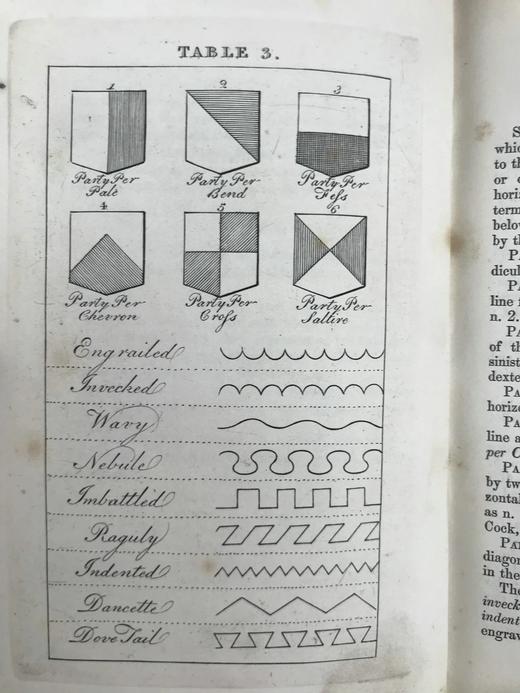 TABLE 3.
1
2
3
Party Per
Pale
Party Per
Bend
Party Per
Fess
4
5
6
Party Per
Chevron
Party Per
Cross
Party Per
Saltire
Engrailed
Invecked
Wavy
Nebule
Imbattled
Raguly
Indented
Dancette
Dove Tail
S
whic
to th
or
horiz
term
belov
by th
PA
dicul
PA
line
n. 2.
PA
of th
sinist
dexte
PA
horizo
PA
line a
per C
PA
by tw
zontal
as n.
Cock,
PAR
diagon
in the
The
inveck
indent
engrav